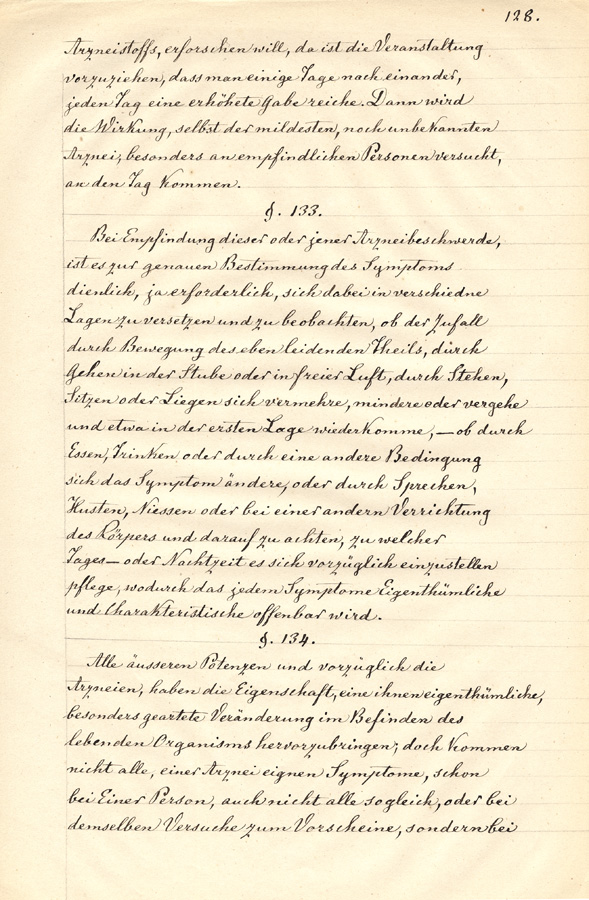 128.
Arzneistoffs, erforschen will, da ist die Veranstaltung
vorzuziehen, dass man einige Tage nach einander,
jeden Tag eine erhöhete Gabe reiche. Dann wird
die Wirkung, selbst der mildesten, noch unbekannten
Arznei, besonders an empfindlichen Personen versucht,
an den Tag kommen.
§. 133.
Bei Empfindung dieser oder jener Arzneibeschwerde,
ist es zur genauen Bestimmung des Symptoms
dienlich, ja erforderlich, sich dabei in verschiedne
Lagen zu versetzen und zu beobachten, ob der Zufall
durch Bewegung des eben leidenden Theils, durch
Gehen in der Stube oder in freier Luft, durch Stehen,
Sitzen oder Liegen sich vermehre, mindere oder vergehe
und etwa in der ersten Lage wiederkomme, — ob durch
Essen, Trinken oder durch eine andere Bedingung
sich das Symptom ändere, oder durch Sprechen,
Husten, Niessen oder bei einer andern Verrichtung
des Körpers und darauf zu achten, zu welcher
Tages — oder Nachtzeit es sich vorzüglich einzustellen
pflege, wodurch das jedem Symptome Eigenthümliche
und Charakteristische offenbar wird.
§. 134.
Alle äusseren Potenzen und vorzüglich die
Arzneien, haben die Eigenschaft, eine ihnen eigenthümliche,
besonders geartete Veränderung im Befinden des
lebenden Organisms hervorzubringen; doch kommen
nicht alle, einer Arznei eignen Symptome, schon
bei Einer Person, auch nicht alle sogleich, oder bei
demselben Versuche zum Vorscheine, sondern bei